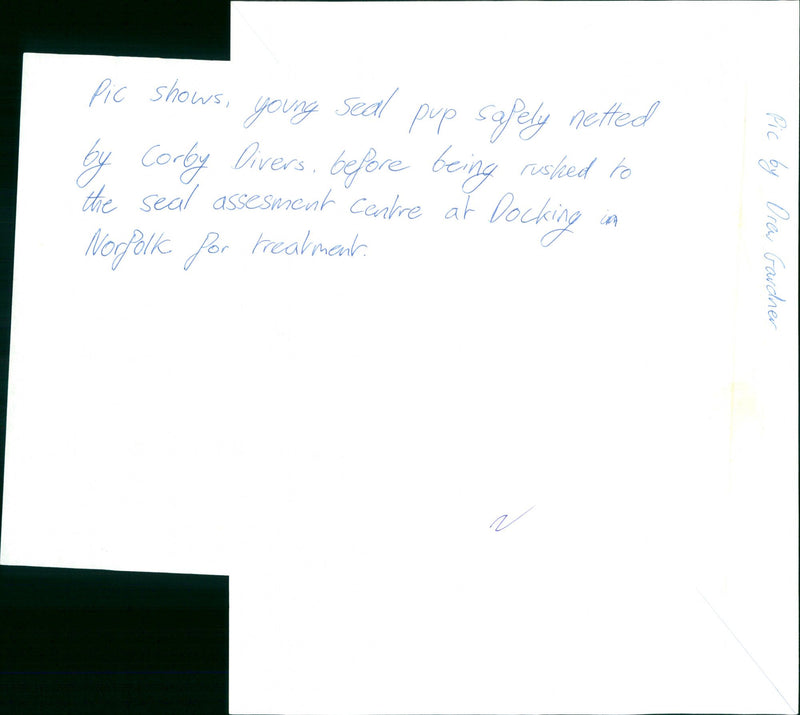 Pic shows, young seal pup safely netted
by Corby Divers. before being rushed to
the seal assesment centre at Docking in
Norfolk for treatment.
Pic by Drew Gardner